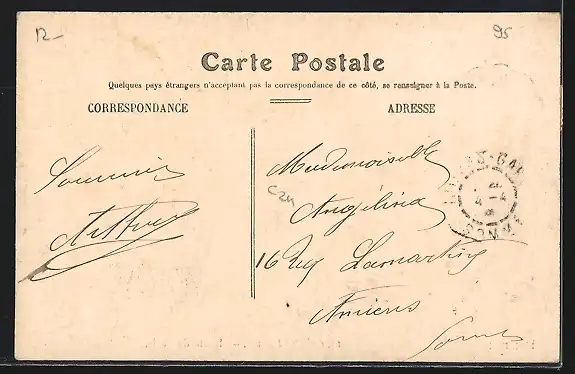 12 -
95
Carte Postale
Quelques pays étrangers n'acceptant pas la correspondance de ce côté, se renseigner à la Poste.
CORRESPONDANCE
ADRESSE
Souvenir
Arthur
Mademoiselle
Angélina
16 Rue Lamartine
Amiens
Somme
C24